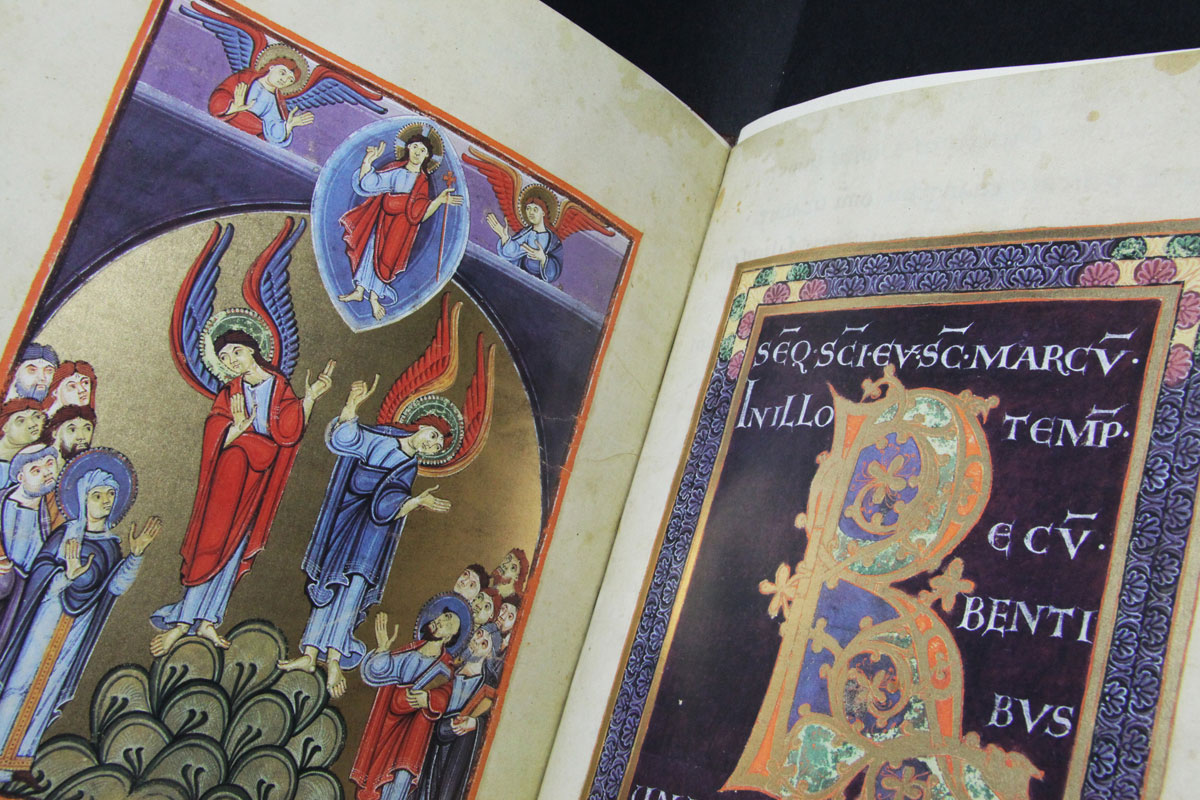 SĒQ·SC̄I·EV·SC̄·MARCV̄·
INILLO TEM̄P·
R ECV̄·
BENTI
BVS